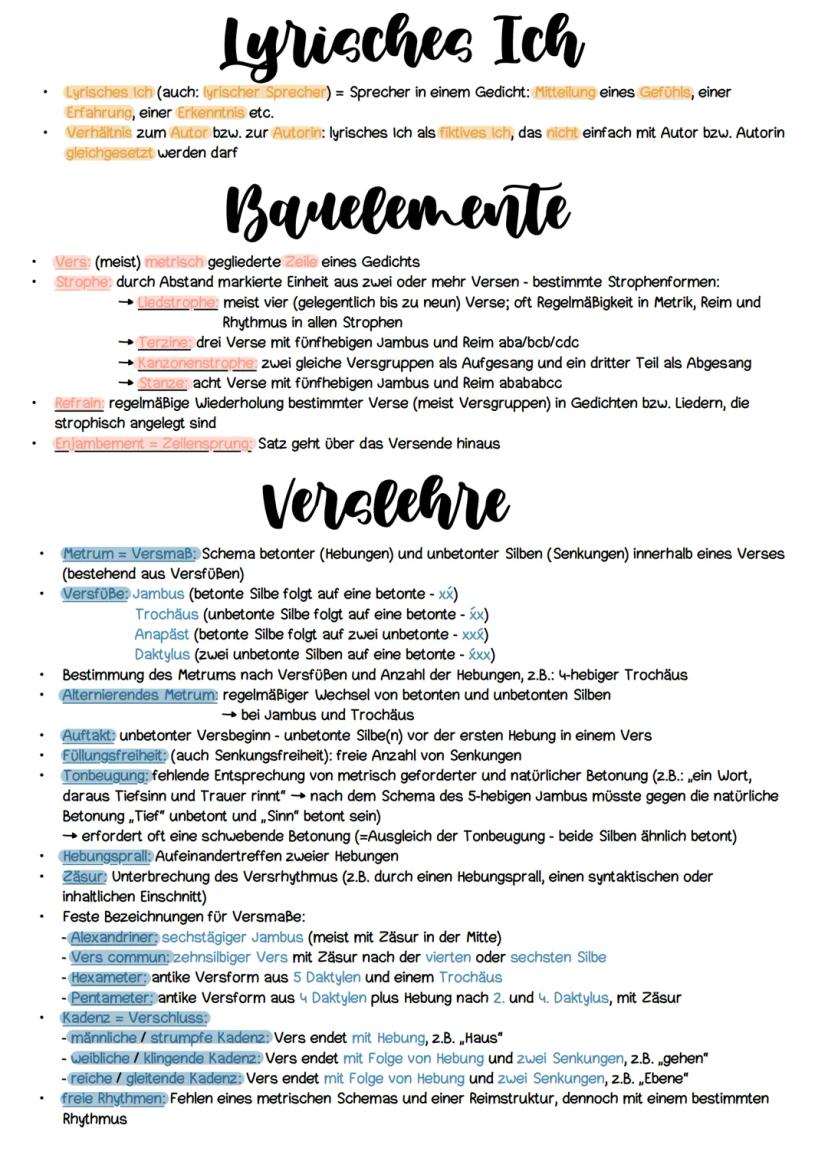 Lyrisches Ich
• Lyrisches Ich (auch: lyrischer Sprecher) = Sprecher in einem Gedicht: Mitteilung eines Gefühls, einer
Erfahrung, einer Erkenntnis etc.
• Verhältnis zum Autor bzw. zur Autorin: lyrisches Ich als fiktives Ich, das nicht einfach mit Autor bzw. Autorin
gleichgesetzt werden darf
Bauelemente
• Vers: (meist) metrisch gegliederte Zeile eines Gedichts
• Strophe: durch Abstand markierte Einheit aus zwei oder mehr Versen - bestimmte Strophenformen:
→ Liedstrophe: meist vier (gelegentlich bis zu neun) Verse; oft Regelmäßigkeit in Metrik, Reim und
Rhythmus in allen Strophen
→ Terzine: drei Verse mit fünfhebigen Jambus und Reim aba/bcb/cdc
→ Kanzonenstrophe: zwei gleiche Versgruppen als Aufgesang und ein dritter Teil als Abgesang
→ Stanze: acht Verse mit fünfhebigen Jambus und Reim abababcc
• Refrain: regelmäßige Wiederholung bestimmter Verse (meist Versgruppen) in Gedichten bzw. Liedern, die
strophisch angelegt sind
• Enjambement = Zeilensprung: Satz geht über das Versende hinaus
Verslehre
• Metrum = Versmaß: Schema betonter (Hebungen) und unbetonter Silben (Senkungen) innerhalb eines Verses
(bestehend aus Versfüßen)
• Versfüße: Jambus (betonte Silbe folgt auf eine betonte - xx́)
Trochäus (unbetonte Silbe folgt auf eine betonte - x́x)
Anapäst (betonte Silbe folgt auf zwei unbetonte - xxx́)
Daktylus (zwei unbetonte Silben auf eine betonte - x́xx)
• Bestimmung des Metrums nach Versfüßen und Anzahl der Hebungen, z.B.: 4-hebiger Trochäus
• Alternierendes Metrum: regelmäßiger Wechsel von betonten und unbetonten Silben
→ bei Jambus und Trochäus
• Auftakt: unbetonter Versbeginn - unbetonte Silbe(n) vor der ersten Hebung in einem Vers
• Füllungsfreiheit: (auch Senkungsfreiheit): freie Anzahl von Senkungen
• Tonbeugung: fehlende Entsprechung von metrisch geforderter und natürlicher Betonung (z.B.: „ein Wort,
daraus Tiefsinn und Trauer rinnt" → nach dem Schema des 5-hebigen Jambus müsste gegen die natürliche
Betonung „Tief" unbetont und „Sinn" betont sein)
→ erfordert oft eine schwebende Betonung (=Ausgleich der Tonbeugung - beide Silben ähnlich betont)
• Hebungsprall: Aufeinandertreffen zweier Hebungen
• Zäsur: Unterbrechung des Versrhythmus (z.B. durch einen Hebungsprall, einen syntaktischen oder
inhaltlichen Einschnitt)
• Feste Bezeichnungen für Versmaße:
- Alexandriner: sechstägiger Jambus (meist mit Zäsur in der Mitte)
- Vers commun: zehnsilbiger Vers mit Zäsur nach der vierten oder sechsten Silbe
- Hexameter: antike Versform aus 5 Daktylen und einem Trochäus
- Pentameter: antike Versform aus 4 Daktylen plus Hebung nach 2. und 4. Daktylus, mit Zäsur
• Kadenz = Verschluss:
- männliche / strumpfe Kadenz: Vers endet mit Hebung, z.B. „Haus"
- weibliche / klingende Kadenz: Vers endet mit Folge von Hebung und zwei Senkungen, z.B. „gehen"
- reiche / gleitende Kadenz: Vers endet mit Folge von Hebung und zwei Senkungen, z.B. „Ebene"
• freie Rhythmen: Fehlen eines metrischen Schemas und einer Reimstruktur, dennoch mit einem bestimmten
Rhythmus